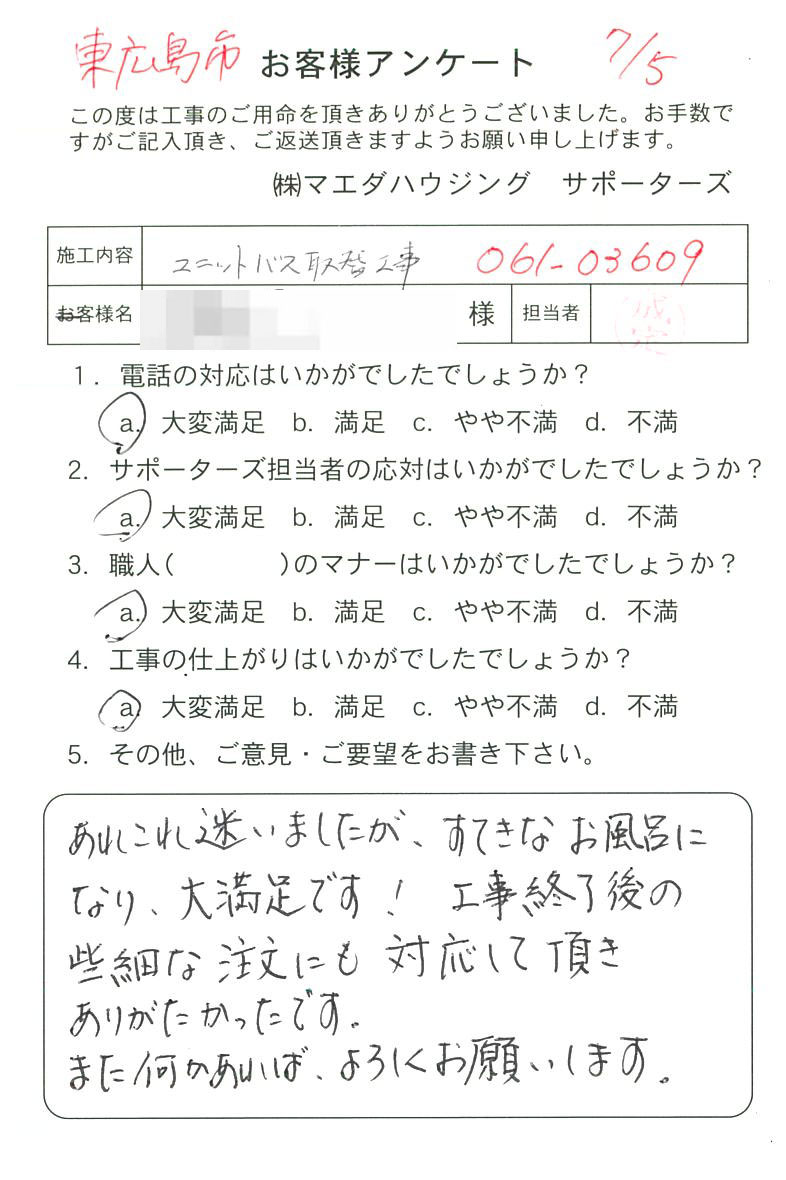 東広島市 お客様アンケート 7/5
この度は工事のご用命を頂きありがとうございました。お手数で
すがご記入頂き、ご返送頂きますようお願い申し上げます。
㈱マエダハウジング サポーターズ
施工内容 ユニットバス取替工事 061-03609
お客様名 様 担当者
1. 電話の対応はいかがでしたでしょうか？
a. 大変満足 b. 満足 c. やや不満 d. 不満
2. サポーターズ担当者の応対はいかがでしたでしょうか？
a. 大変満足 b. 満足 c. やや不満 d. 不満
3. 職人( )のマナーはいかがでしたでしょうか？
a. 大変満足 b. 満足 c. やや不満 d. 不満
4. 工事の仕上がりはいかがでしたでしょうか？
a. 大変満足 b. 満足 c. やや不満 d. 不満
5. その他、ご意見・ご要望をお書き下さい。
あれこれ迷いましたが、すてきなお風呂に
なり、大満足です！ 工事終了後の
些細な注文にも対応して頂き
ありがたかったです。
また何かあれば、よろしくお願いします。